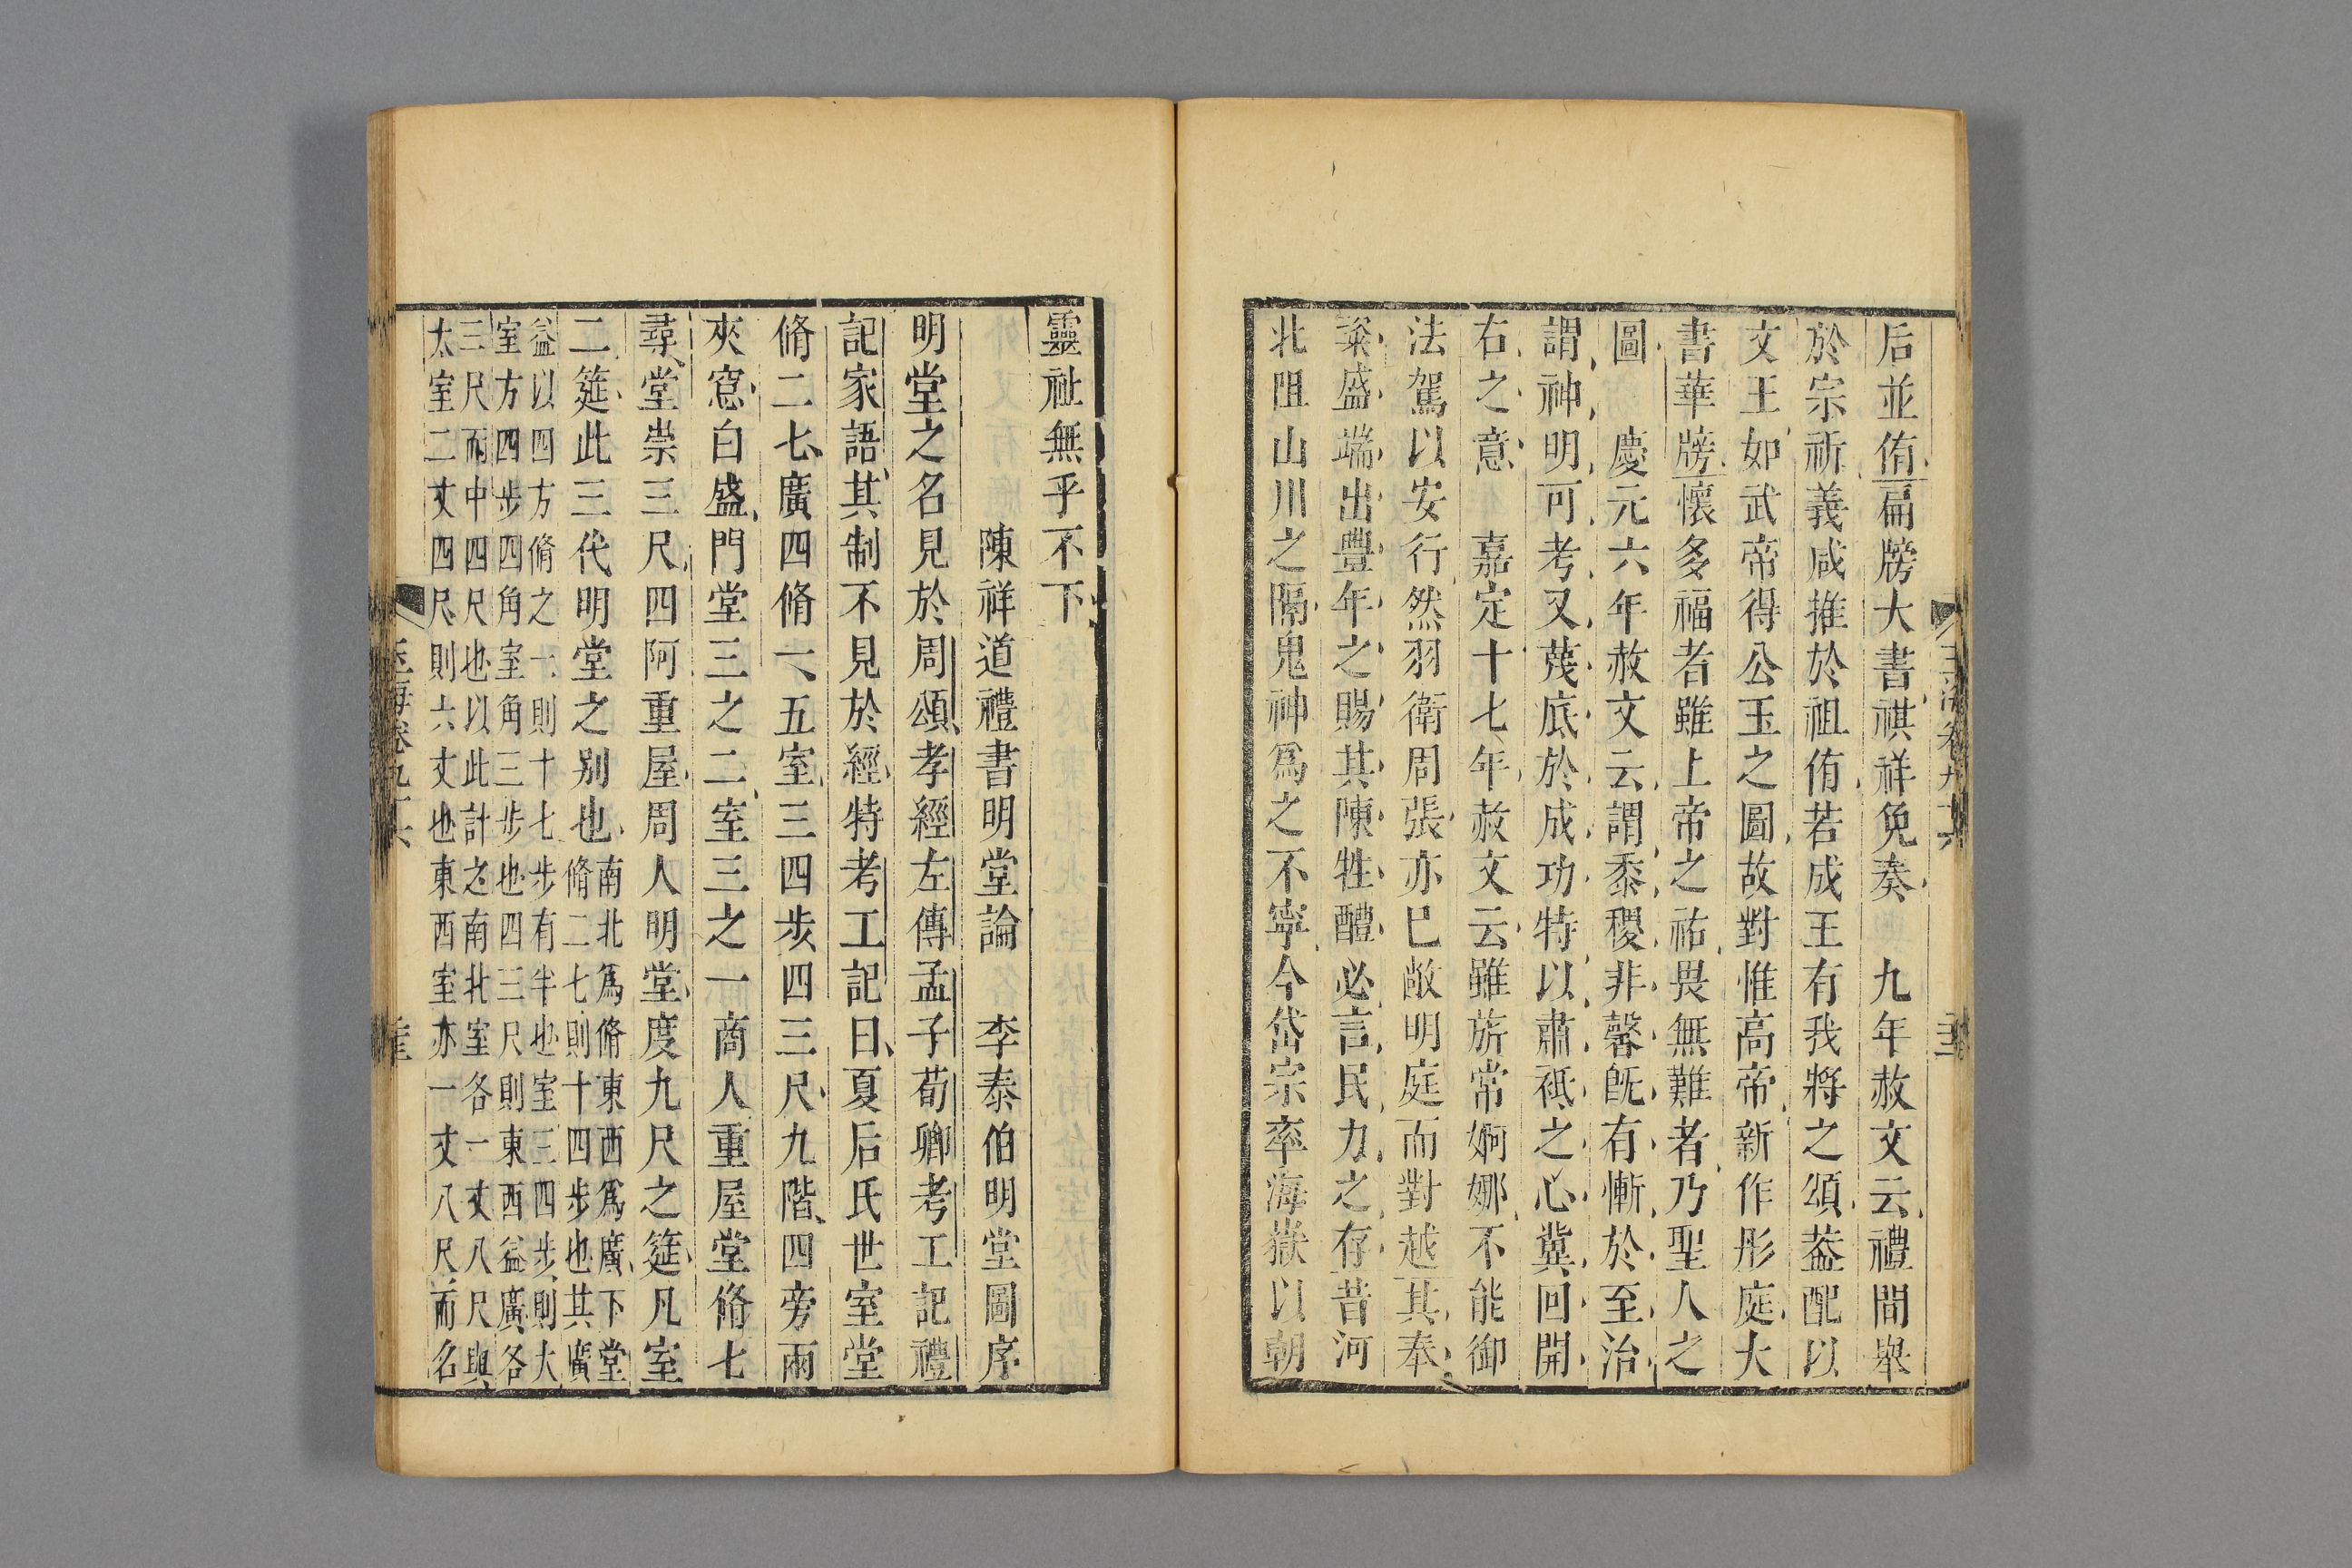 后並侑扁牓大書祺祥免奏 九年赦文云禮間舉
於宗祈義咸推於祖侑若成王有我將之頌葢配以
文王如武帝得公玉之圖故對惟高帝新作彤庭大
書華牓懷多福者雖上帝之祐畏無難者乃聖人之
圖 慶元六年赦文云謂黍稷非馨旣有慚於至治
謂神明可考又蔑底於成功特以肅祗之心冀回開
右之意 嘉定十七年赦文云雖旂常婀娜不能御
法駕以安行然羽衛周張亦巳敞明庭而對越其奉
粢盛端出豐年之賜其陳牲醴必言民力之存昔河
北阻山川之隔鬼神爲之不寧今岱宗率海嶽以朝
靈祉無乎不下
陳祥道禮書明堂論 李泰伯明堂圖序
明堂之名見於周頌孝經左傳孟子荀卿考工記禮
記家語其制不見於經特考工記曰夏后氏世室堂
脩二七廣四脩一五室三四步四三尺九階四旁兩
夾窓白盛門堂三之二室三之一商人重屋堂脩七
尋堂崇三尺四阿重屋周人明堂度九尺之筵凡室
二筵此三代明堂之别也
南北爲脩東西爲廣下堂
脩二七則十四步也其廣
益以四方脩之一則十七步有半也室三四步則大
室方四步四角室角三步也四三尺則東西益廣各
三尺而中四尺也以此計之南北室各一丈八尺與
太室二丈四尺則六丈也東西室亦一丈八尺而名
玉海卷九十六